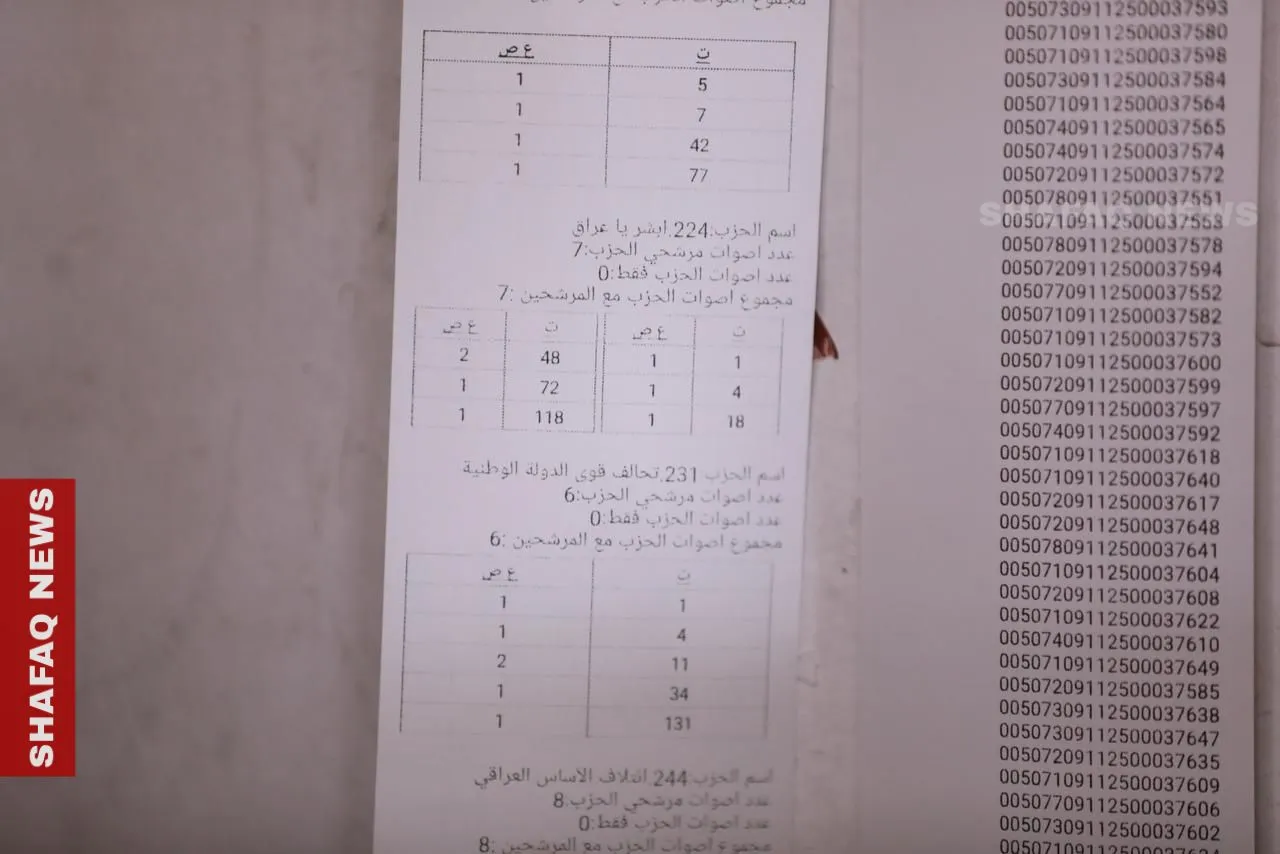 ع ص ت
1 5
1 7
1 42
1 77
اسم الحزب:224.ابشر يا عراق
عدد اصوات مرشحي الحزب:7
عدد اصوات الحزب فقط:0
مجموع اصوات الحزب مع المرشحين :7
ع ص ت ع ص ت
2 48 1 1
1 72 1 4
1 118 1 18
اسم الحزب:231.تحالف قوى الدولة الوطنية
عدد اصوات مرشحي الحزب:6
عدد اصوات الحزب فقط:0
مجموع اصوات الحزب مع المرشحين :6
ع ص ت
1 1
1 4
2 11
1 34
1 131
اسم الحزب:244.ائتلاف الأساس العراقي
عدد اصوات مرشحي الحزب:8
عدد اصوات الحزب فقط:0
مجموع اصوات الحزب مع المرشحين :8
00507309112500037593
00507109112500037580
00507109112500037598
00507309112500037584
00507109112500037564
00507409112500037565
00507409112500037574
00507209112500037572
00507809112500037551
00507109112500037553
00507809112500037578
00507209112500037594
00507709112500037552
00507109112500037582
00507109112500037573
00507109112500037600
00507209112500037599
00507709112500037597
00507409112500037592
00507109112500037618
00507109112500037640
00507209112500037617
00507209112500037648
00507809112500037641
00507109112500037604
00507209112500037608
00507109112500037622
00507409112500037610
00507109112500037649
00507209112500037585
00507309112500037638
00507309112500037647
00507209112500037635
00507109112500037609
00507709112500037606
00507309112500037602
SHAFAQ NEWS
SHAFAQ NEWS